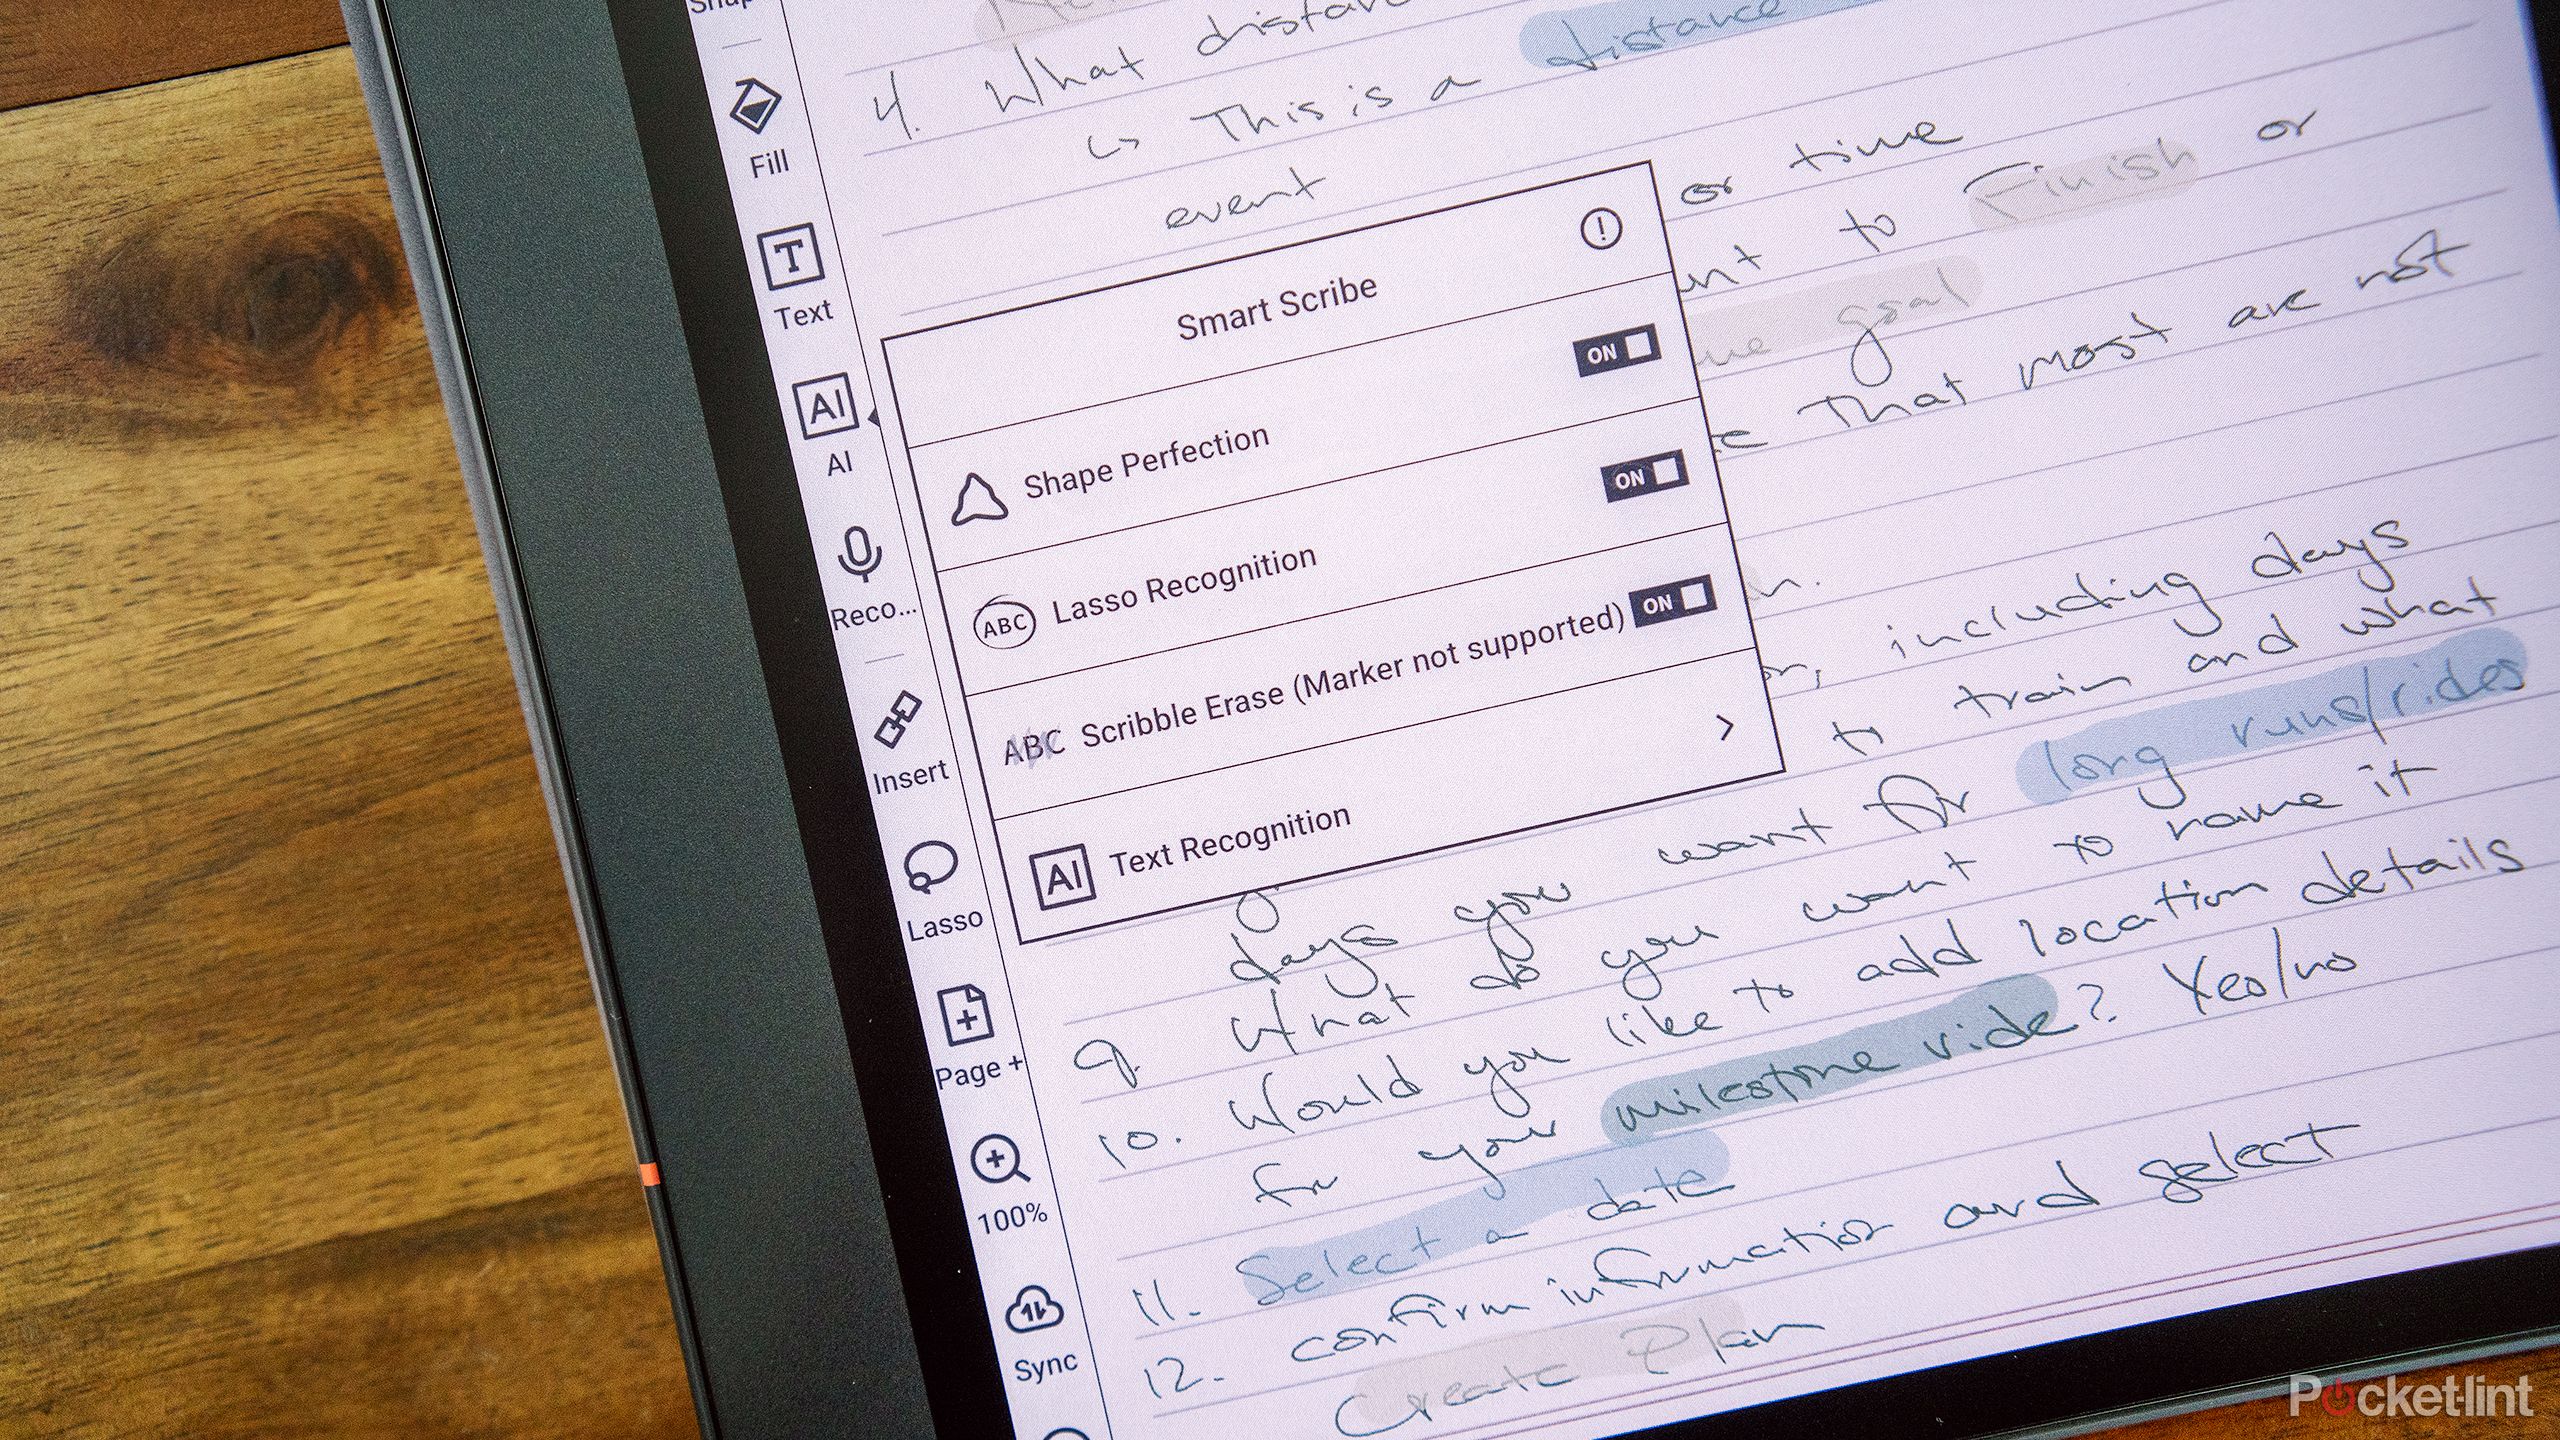 Fill
Text
AI
AI
Reco...
Insert
Lasso
Page +
100%
Sync
4. What
↳ This is a distance
event or time
to Finish or
goal
That most are not
Smart Scribe
ON
Shape Perfection
ON
ABC Lasso Recognition
ON
ABC Scribble Erase (Marker not supported)
AI Text Recognition >
including days
to train and what
days you want for long runs/rides
9. What do you want to name it
10. Would you like to add location details
for your milestone ride? Yes/no
11. Select a date
12. confirm information and select
Create Plan
Pocket-lint